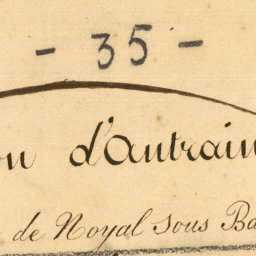 - 35 -
on d'Antrain
de Noyal sous Ba